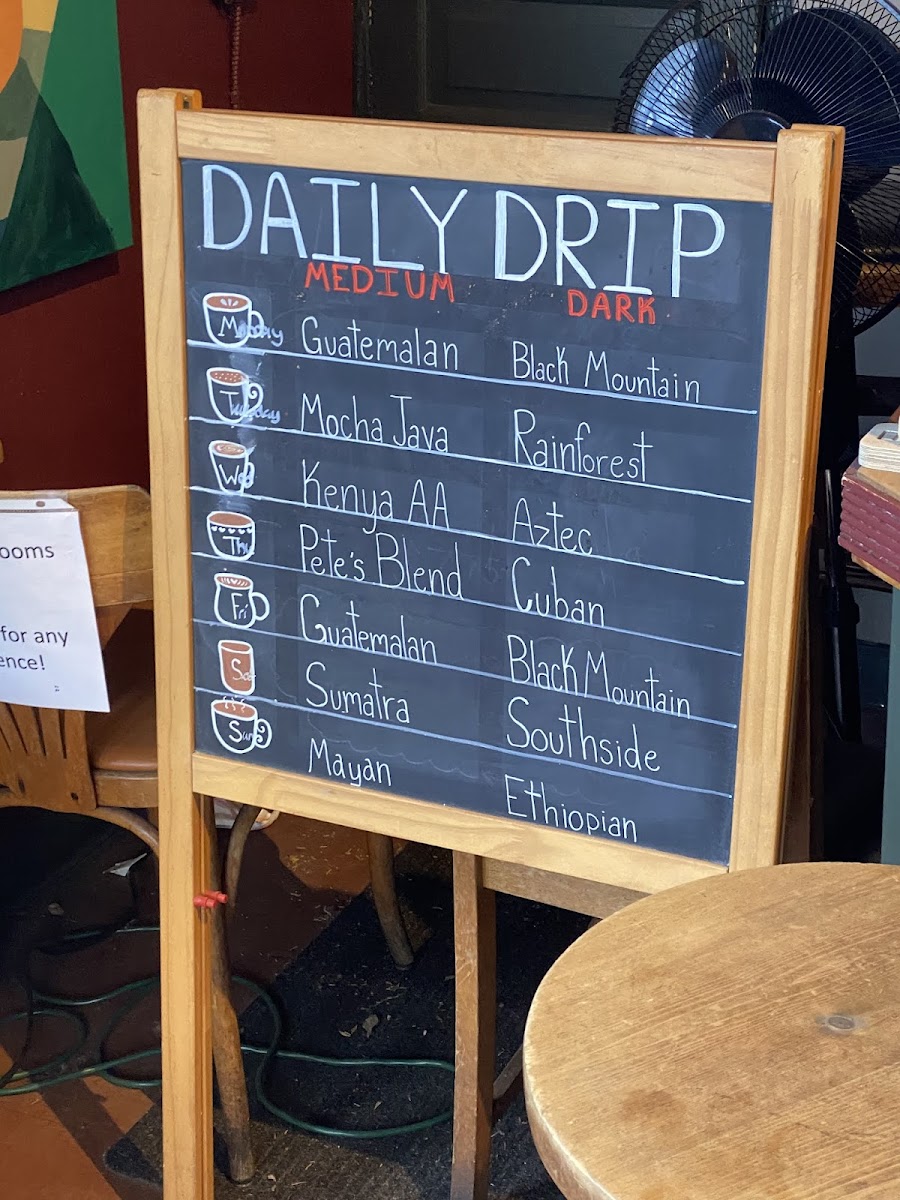 DAILY DRIP
MEDIUM DARK
Monday Guatemalan Black Mountain
Tuesday Mocha Java Rainforest
Wed Kenya AA Aztec
Thu Pete's Blend Cuban
Fri Guatemalan Black Mountain
Sat Sumatra Southside
Sun Mayan Ethiopian
ooms
for any
ence!